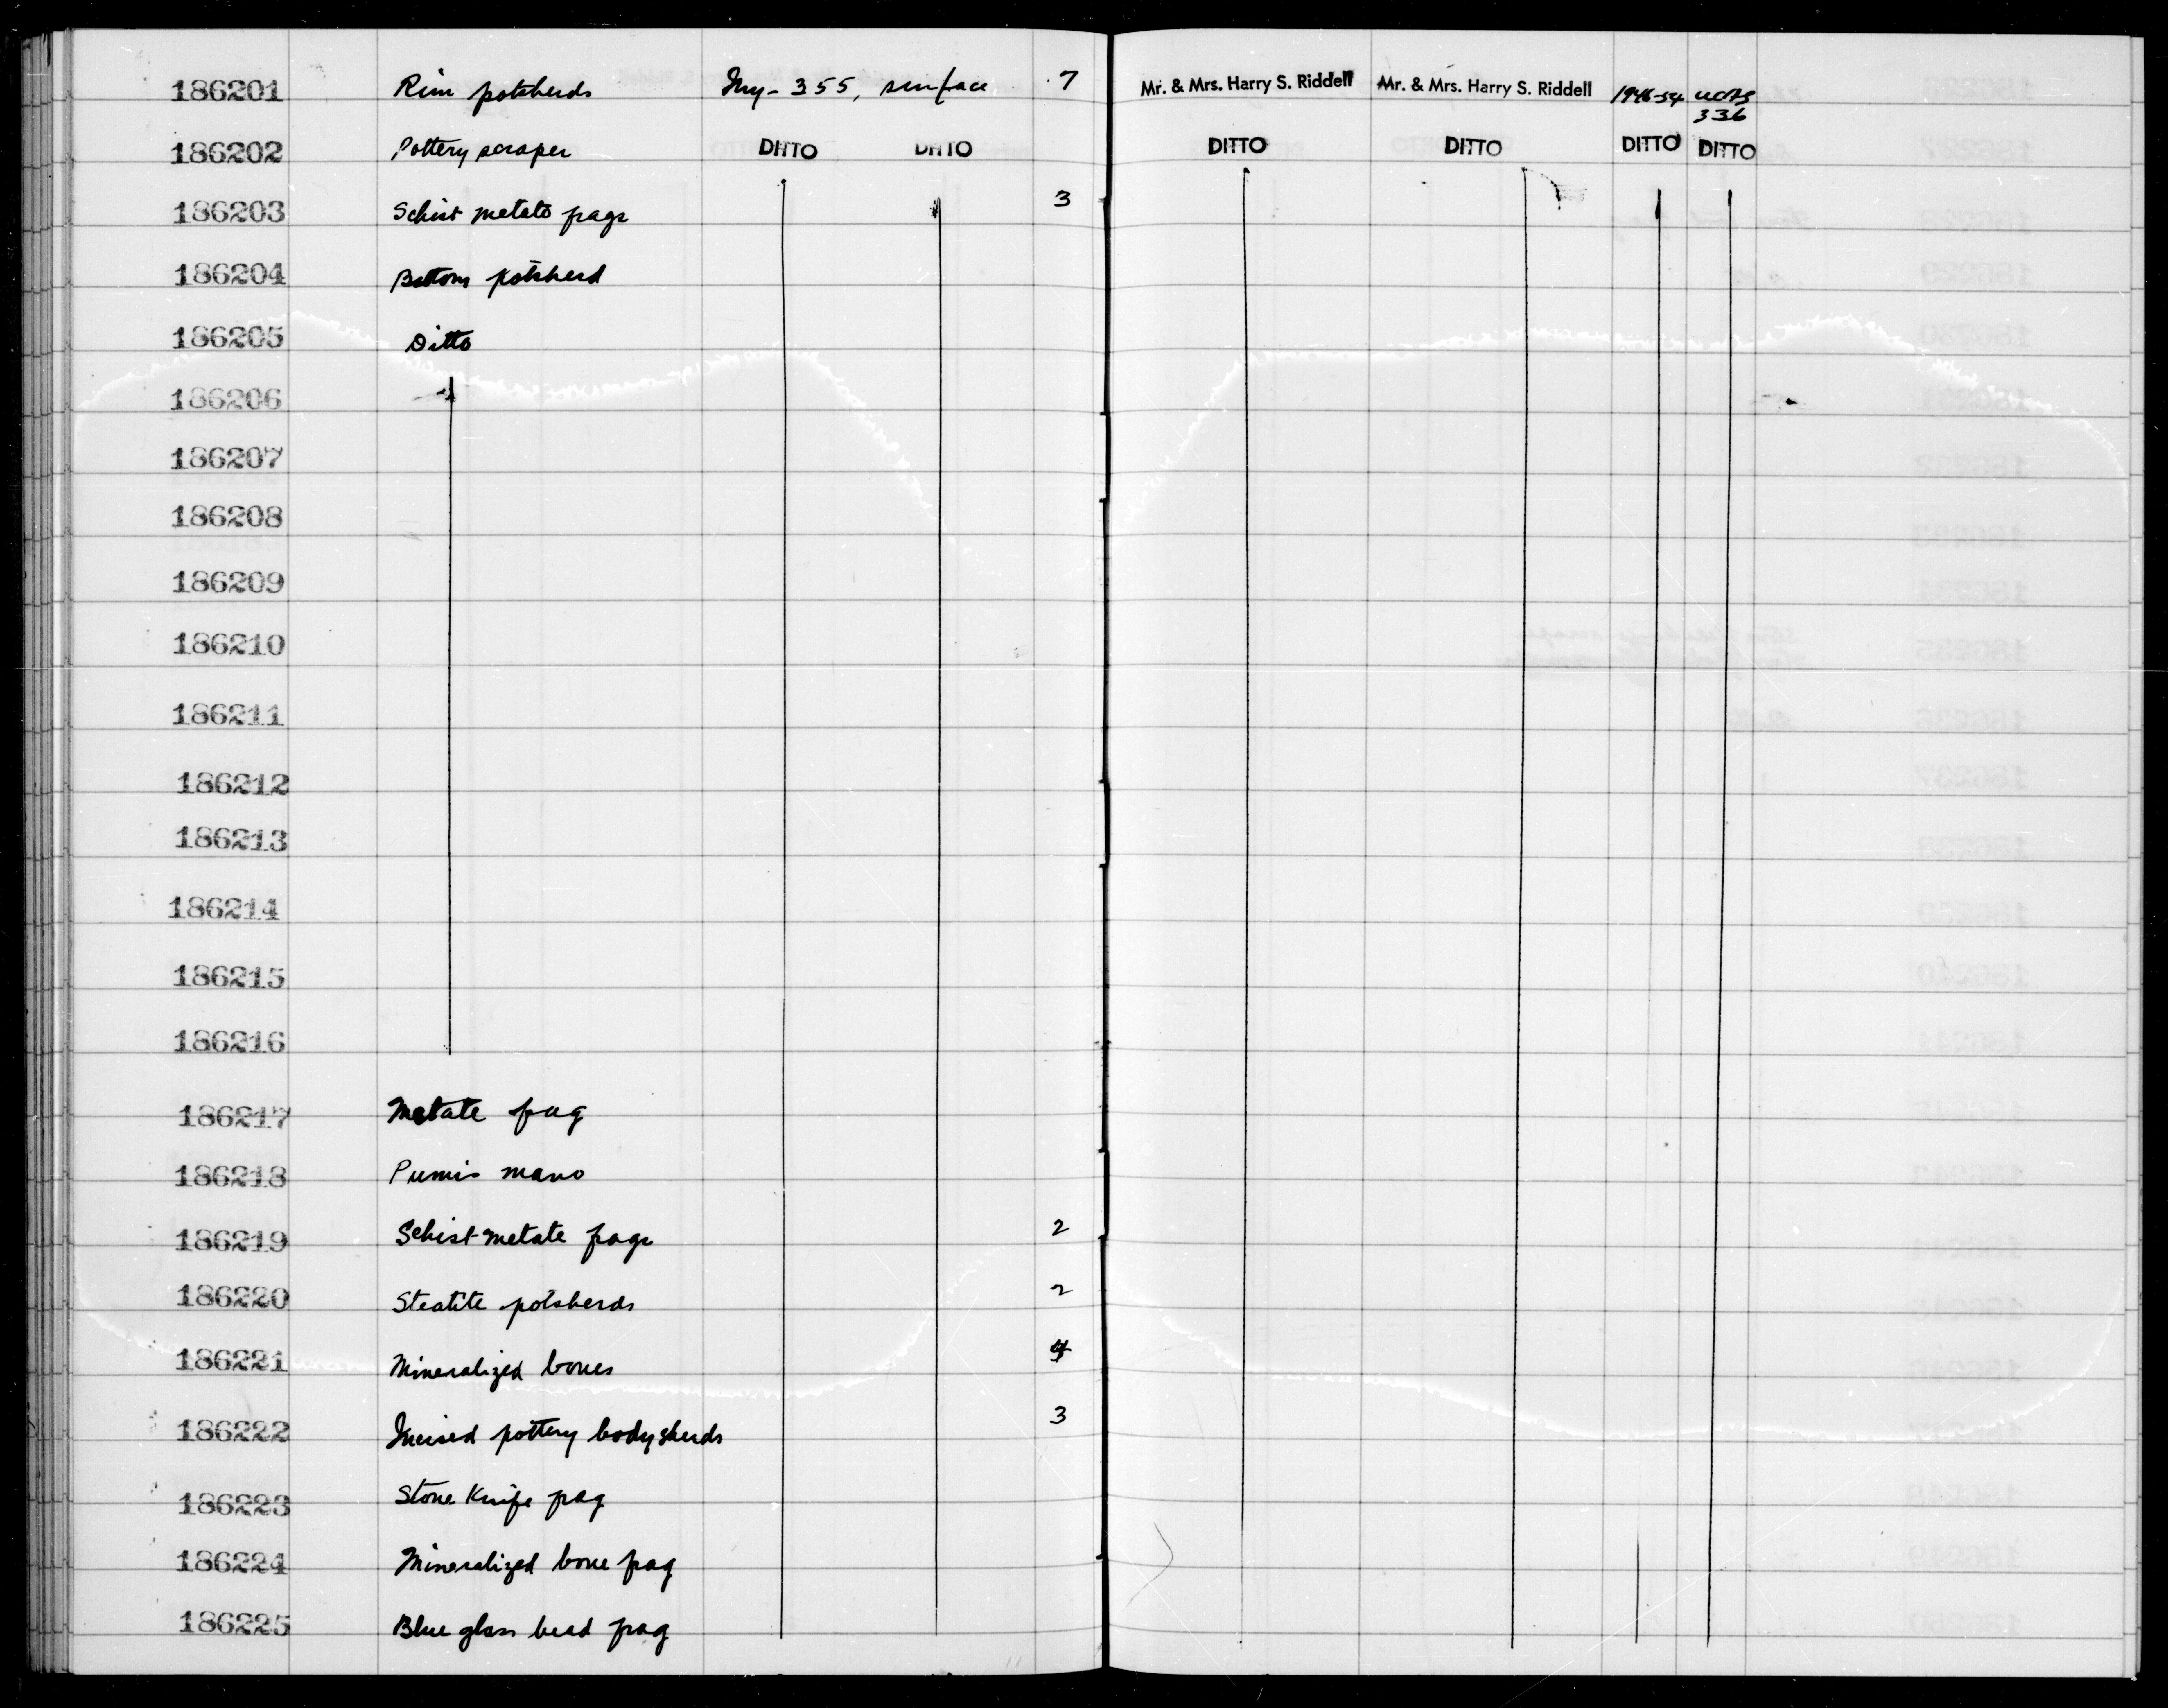 186201 Rim potsherds Iny-355, surface 7 Mr. & Mrs. Harry S. Riddell Mr. & Mrs. Harry S. Riddell 1946-54 UCAS
336
186202 Pottery scraper DITTO DITTO DITTO DITTO DITTO DITTO
186203 Schist metate frags 3
186204 Bottom potsherd
186205 Ditto
186206
186207
186208
186209
186210
186211
186212
186213
186214
186215
186216
186217 Metate frag
186218 Pumis mano
186219 Schist metate frags 2
186220 Steatite potsherds 2
186221 Mineralized bones
186222 Incised pottery bodysherds 3
186223 Stone Knife frag
186224 Mineralized bone frag
186225 Blue glass bead frag